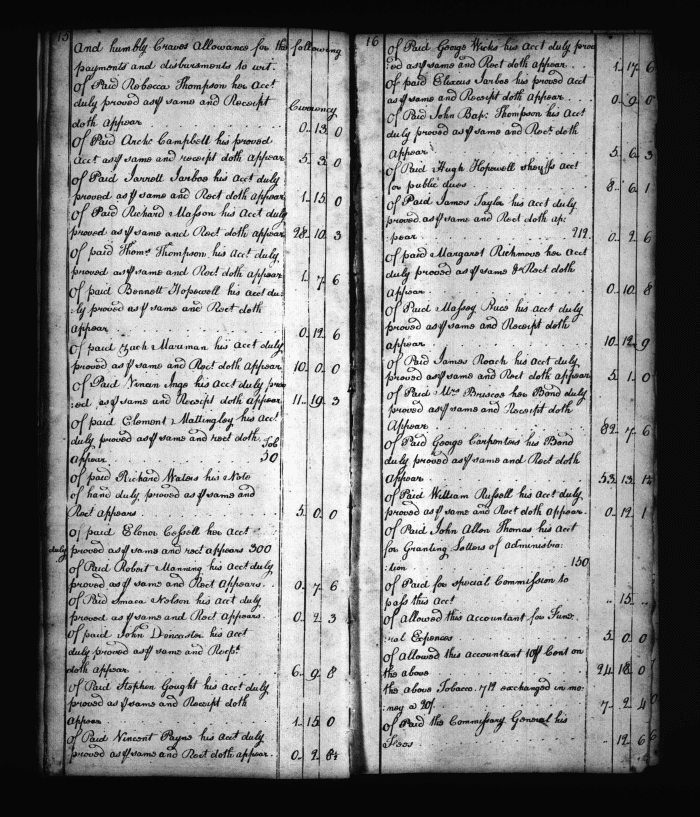 15
And humbly Craves Allowance for the following
payments and disbursments to wit.
Of Paid Rebecca Thompson her Acct
duly proved as ꝑ same and Receipt Currency
doth Appear 0 13 0
Of Paid Archd Campbell his proved
Acct as ꝑ same and receipt doth appear 5 3 0
Of Paid Jarrott Jarboe his Acct duly
proved as ꝑ same and Rect doth appear 1 15 0
Of Paid Richard Masson his Acct duly
proved as ꝑ same and Rect doth appear 28 10 3
Of paid Thoms Thompson his Acct duly
proved as ꝑ same and Rect doth appear 1 7 6
Of paid Bennett Hopewell his Acct du:
:ly proved as ꝑ same and Rect doth
appear 0 12 6
Of paid Zach Mareman his Acct duly
proved as ꝑ same and Rect doth appear 10 0 0
Of Paid Vincen Inge his Acct duly pro
:ed as ꝑ same and Receipt doth appear 11 19 3
Of paid Clement Mattingley his Acct
duly proved as ꝑ same and rect doth Tob
Appear 30
Of paid Richard Waters his Note
of hand duly proved as ꝑ same and
Rect appears 5 0 0
Of paid Elenor Cossell her Acct
duly proved as ꝑ same and rect appears 300
Of Paid Robert Manning his Acct duly
proved as ꝑ same and Rect Appears 0 7 6
Of Paid Nelson his Acct duly
proved as ꝑ same and Rect Appears 0 2 3
Of paid John Doncaster his Acct
duly proved as ꝑ same and Recpt
doth appear 6 9 8
Of Paid Stephen Gought his Acct duly
proved as ꝑ same and Receipt doth
Appear 1 15 0
Of Paid Vincent Payne his Acct duly
proved as ꝑ same and Rect doth appear 0 2
16
Of Paid George Hicks his Acct duly prov
:ed as ꝑ same and Rect doth appear 1 17 6
Of paid Jarboe his proved Acct
as ꝑ same and Receipt doth appear 0 9 0
Of Paid John Bapt Thompson his Acct
duly proved as ꝑ same and Rect doth
Appear 5 6 3
Of Paid Hugh Hopewell sheriffs acct
for public dues 8 6 1
Of Paid James Taylor his Acct duly
proved as ꝑ same and Rect doth ap:
:pear 719 0 2 6
Of paid Margaret Richmore her Acct
duly proved as ꝑ same & Rect doth
Appear 0 10 8
Of Paid Massey his Acct duly
proved as ꝑ same and Receipt doth
appear 10 12 9
Of Paid James Roach his Acct duly
proved as ꝑ same and Rect doth appear 5 1 0
Of Paid Mrs Briscoe her Bond duly
proved as ꝑ same and Receipt doth
Appear 82 7 6
Of Paid George Carpenters his Bond
duly proved as ꝑ same and Rect doth
Appear 53 13
Of Paid William Russell his Acct duly
proved as ꝑ same and Rect doth Appear 0 12 1
Of Paid John Allen Thomas his Acct
for Granting Letters of Administra:
:tion 150
Of Paid for special Commission to
pass this Acct .. 15 ..
Of allowed this Accountant for Fune
ral Expences 5 0 0
Of Allowed this Accountant 10 ꝑ Cent on
the above 24 18 0
the above Tobacco 719 exchanged in mo:
:ney a 20/ 7 2 4
Of Paid the Commissary General his
Fees 12 6